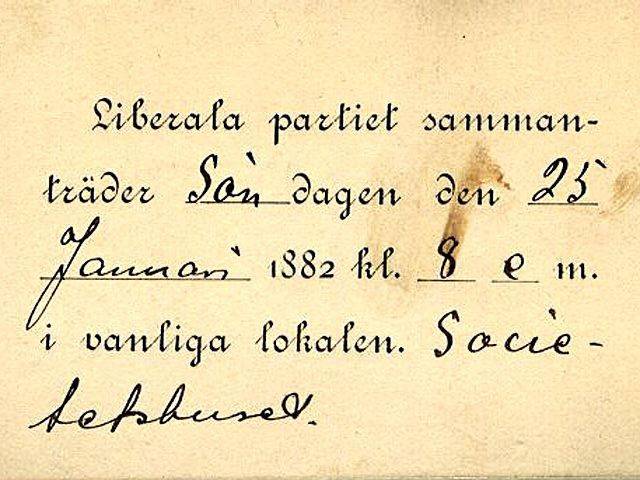 Liberala partiet samman-
träder Sön dagen den 25
Januari 1882 kl. 8 e m.
i vanliga lokalen. Socie-
tetshuset.